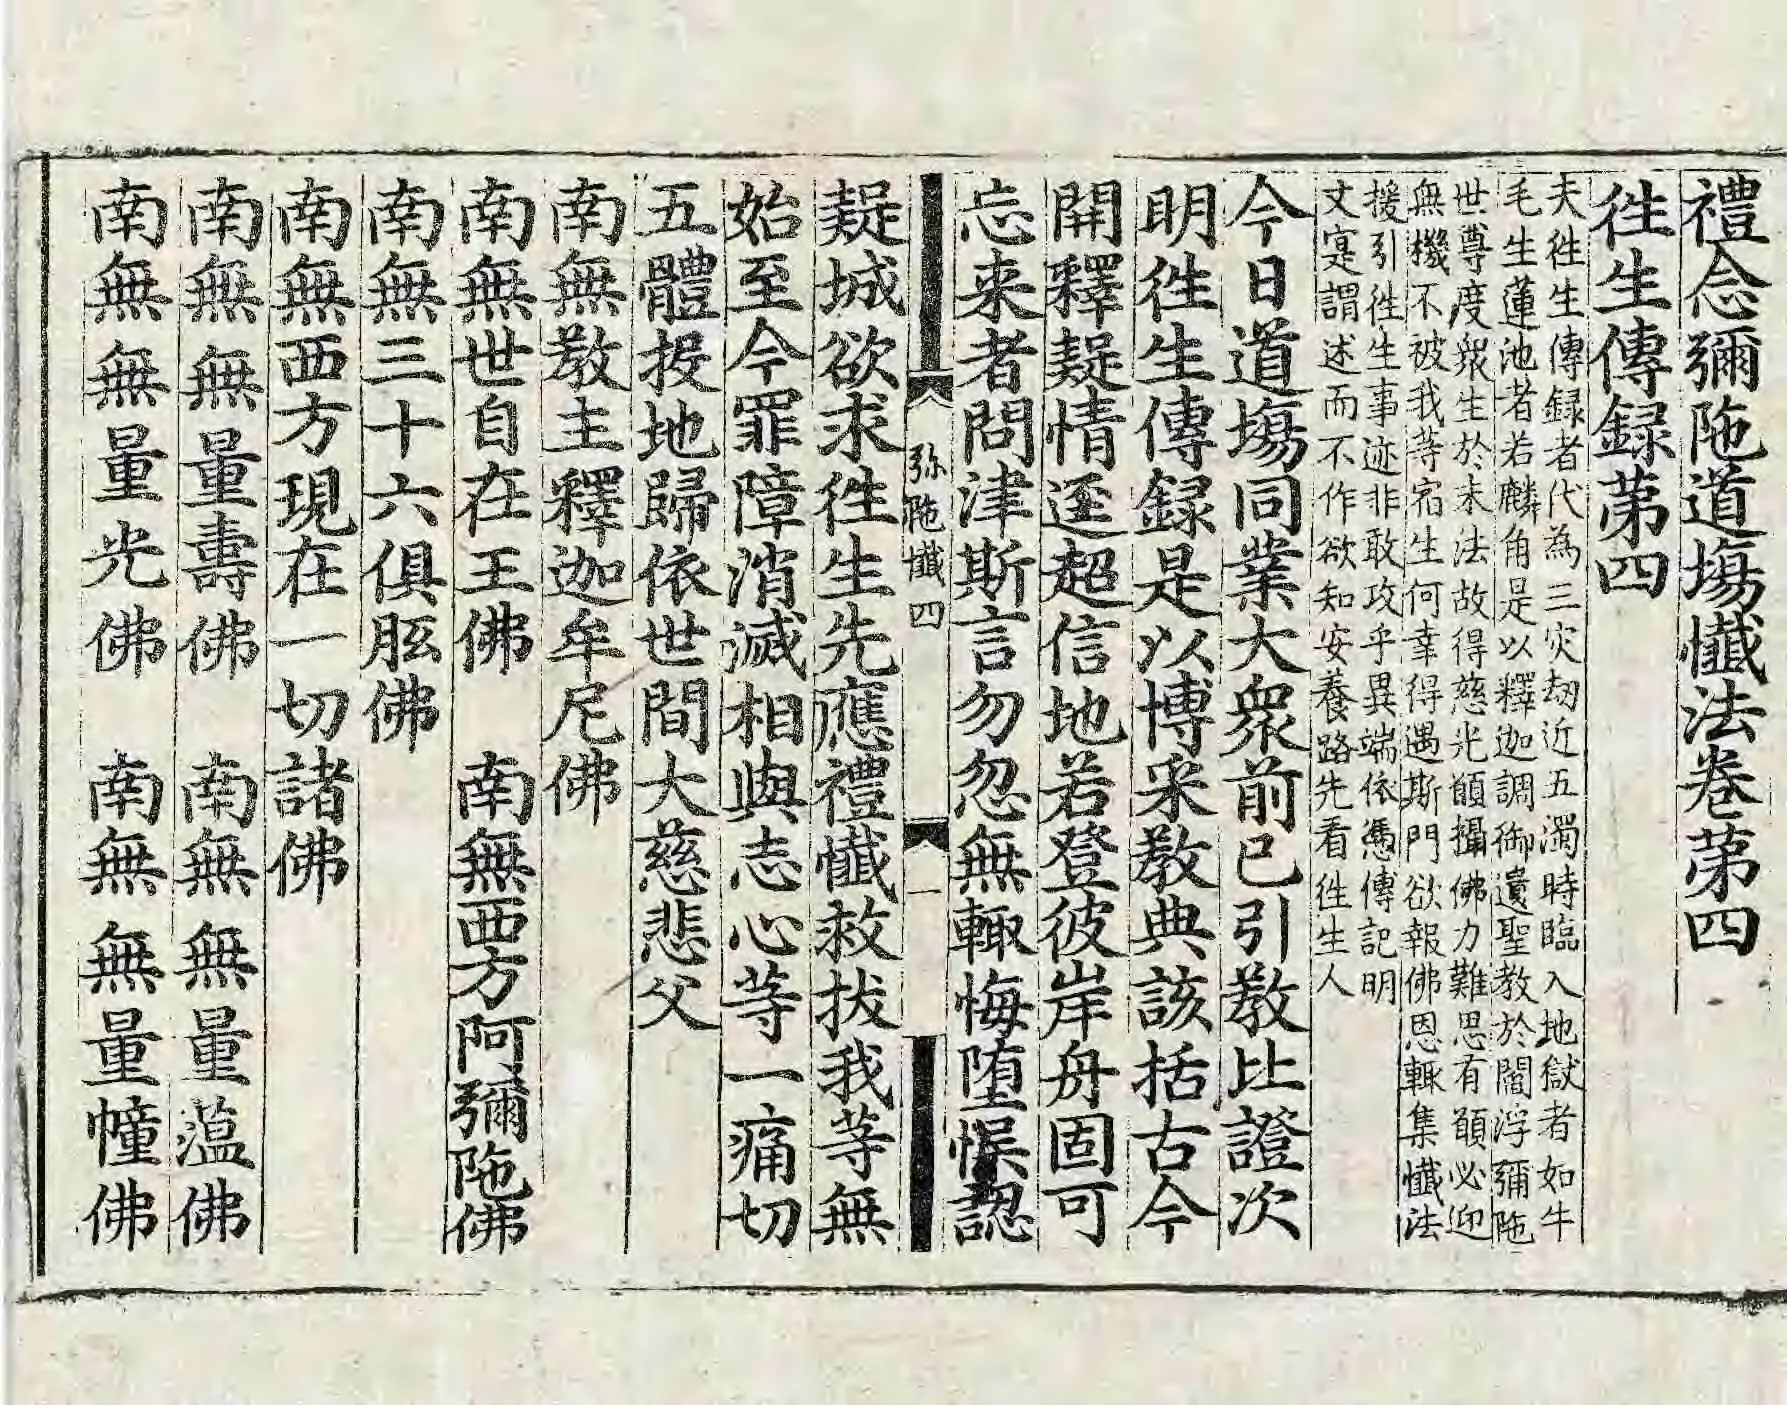 禮念彌陁道場懺法卷苐四
徃生傳録苐四
夫徃生傳録者代為三灾劫近五濁時臨入地獄者如牛
毛生蓮池者若麟角是以釋迦調御遺聖教於閻浮彌陁
世尊度衆生於末法故得慈光頠攝佛力難思有頠必迎
無機不被我等宿生何幸得遇斯門欲報佛恩輙集懺法
援引徃生事迹非敢攻乎異端依憑傳記明
文寔謂述而不作欲知安養路先看徃生人
今日道場同業大衆前已引教比證次
明徃生傳録是以博采教典該括古今
開釋疑情逕超信地若登彼岸舟固可
忘来者問津斯言勿忽無輙悔堕悮認
弥陁懺四
一
疑城欲求徃生先應禮懺救拔我等無
始至今罪障消滅相與志心等一痛切
五體投地歸依世間大慈悲父
南無教主釋迦牟尼佛
南無世自在王佛 南無西方阿彌陁佛
南無三十六俱胝佛
南無西方現在一切諸佛
南無無量壽佛 南無無量蕴佛
南無無量光佛 南無無量幢佛